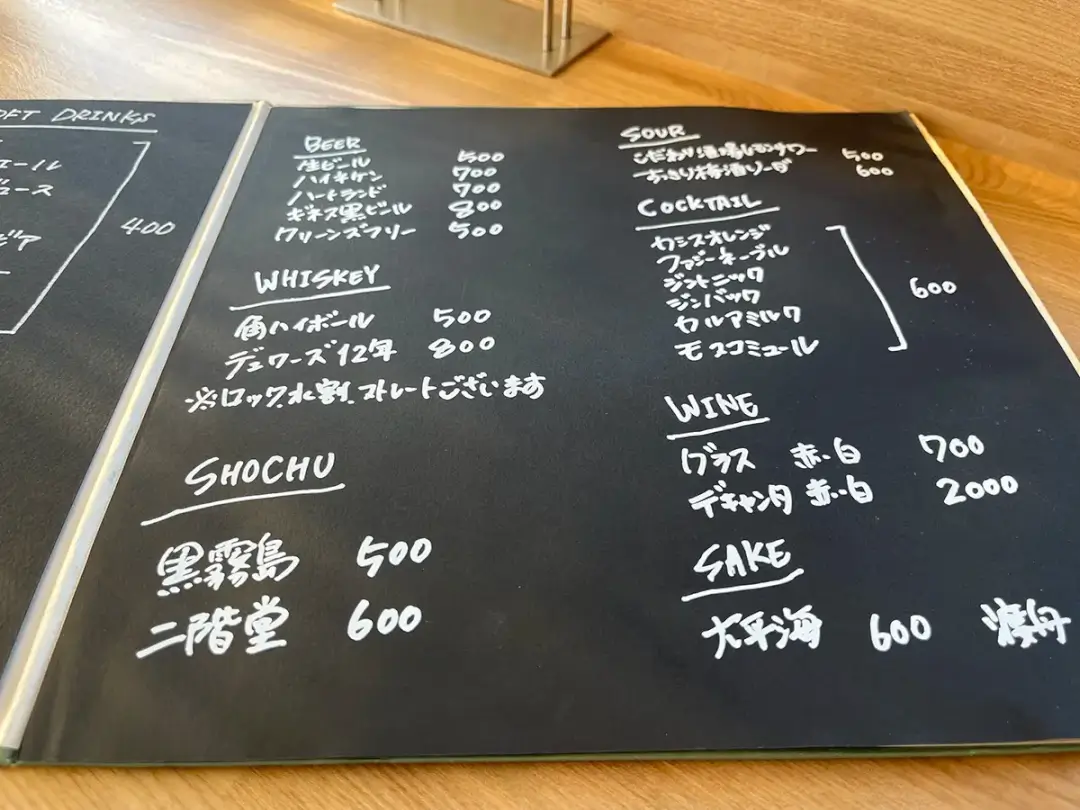 OFT DRINKS
エール
ュース
400
BEER
生ビール 500
ハイネケン 700
ハートランド 700
ギネス黒ビール 800
クリーンズフリー 500
WHISKEY
角ハイボール 500
デュワーズ12年 800
※ロック、水割、ストレートございます
SHOCHU
黒霧島 500
二階堂 600
SOUR
こだわり酒場レモンサワー 500
すっきり梅酒ソーダ 600
COCKTAIL
カシスオレンジ
ファジーネーブル
ジントニック
ジンバック
カルアミルク
モスコミュール
600
WINE
グラス 赤・白 700
デキャンタ 赤・白 2000
SAKE
大平海 600